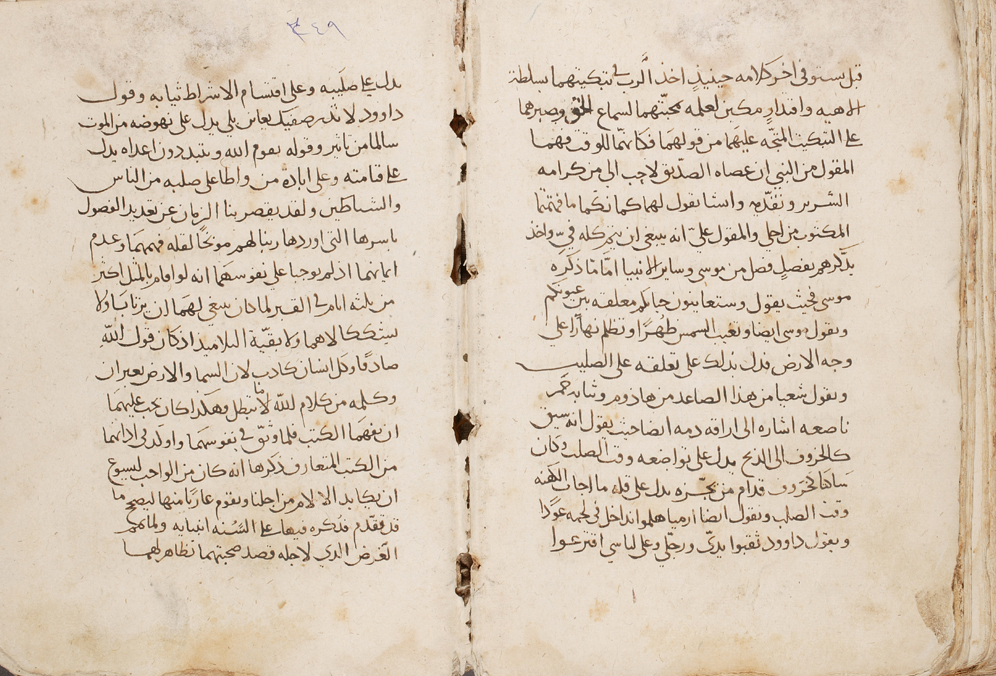 قبل يسير وفي اخر كلامه حينيذٍ اخذ الرب في تبكيتهما بسلطنة
الاهيه واقتدارٍ مكين لعلمه محبتهما لسماع الحق وصبرهما
على التبكيت المتجه عليهما من قولهما فكانهما للوقت فهما
المقول من النبي ان عصاه الصدّيق لاحب الي من كرامه
الشرير وتقدّم وانشا يقول لهما كما نكما ما فهمتما
المكتوب من اجلي والمقول علي انه ينبغي ان يتم كله في واخذ
يذكرهم بفصلٍ فصل من موسى وساير الانبيا امّا ما ذكره
موسى فحيث يقول وستعاينون حياتكم معلقه بين عيونكم
ويقول موسى ايضا وتغيب الشمس ظهرًا وتظلم نهارًا على
وجه الارض فدل بذلك على تعلقه على الصليب
ويقول شعيا من هذا الصاعد من هادوم وثيابه حمر
ناصعه اشاره الى اراقة دمه ايضا حيث يقول انه سيق
كالخروف الى الذبح يدل على تواضعه وقت الصلب وكان
ساكتا كالخروف قدام من يجزه يدل على قلة ما اجاب الكهنه
وقت الصلب ويقول ايضا ارميا هلموا نداخل في لحمه عودًا
ويقول داوود ثقبوا يديّ ورجليّ وعلى لباسي اقترعوا
٣٤٩
يدل على صلبه وعلى اقتسام الاشراط ثيابه وقول
داوود لا تدع صفيك يعاين بلى يدل على نهوضه من الموت
سالما من تاثير وقوله يقوم الله ويتبدد ون اعداه يدل
على قيامته وعلى ابادة من واطا على صلبه من الناس
والشياطين ولقد يقصر بنا الزمان عن تعديد الفصول
باسرها التي اوردها ربنا لهم موبخًا لقلة فهمهما وعدم
ايمانهما اذ لم يوجبا على نفوسهما انه لو اقام بالمثل اكثر
من ثلثة ايام في القبر لما كان ينبغي لهما ان يرتابا ولا
يتشككا لاهما ولا بقيّة التلاميذ اذ كان قول الله
صادقا وكل انسان كاذب لان السما والارض تعبران
وكلمه من كلام الله لا تبطل وهكذا كان يجب عليهما
ان يفهما الكتب فلما وثق في نفوسهما واولد في اذانهما
من الكتب المتعارف ذكرها انه كان من الواجب ليسوع
ان يكابد الالام من اجلنا ويقوم عاريًا منها ليصح ما
قد تقدم تذكره فيها على السنه انبيايه ولما تمم
الغرض الذي لاجله قصد صحبتهما تظاهر لهما